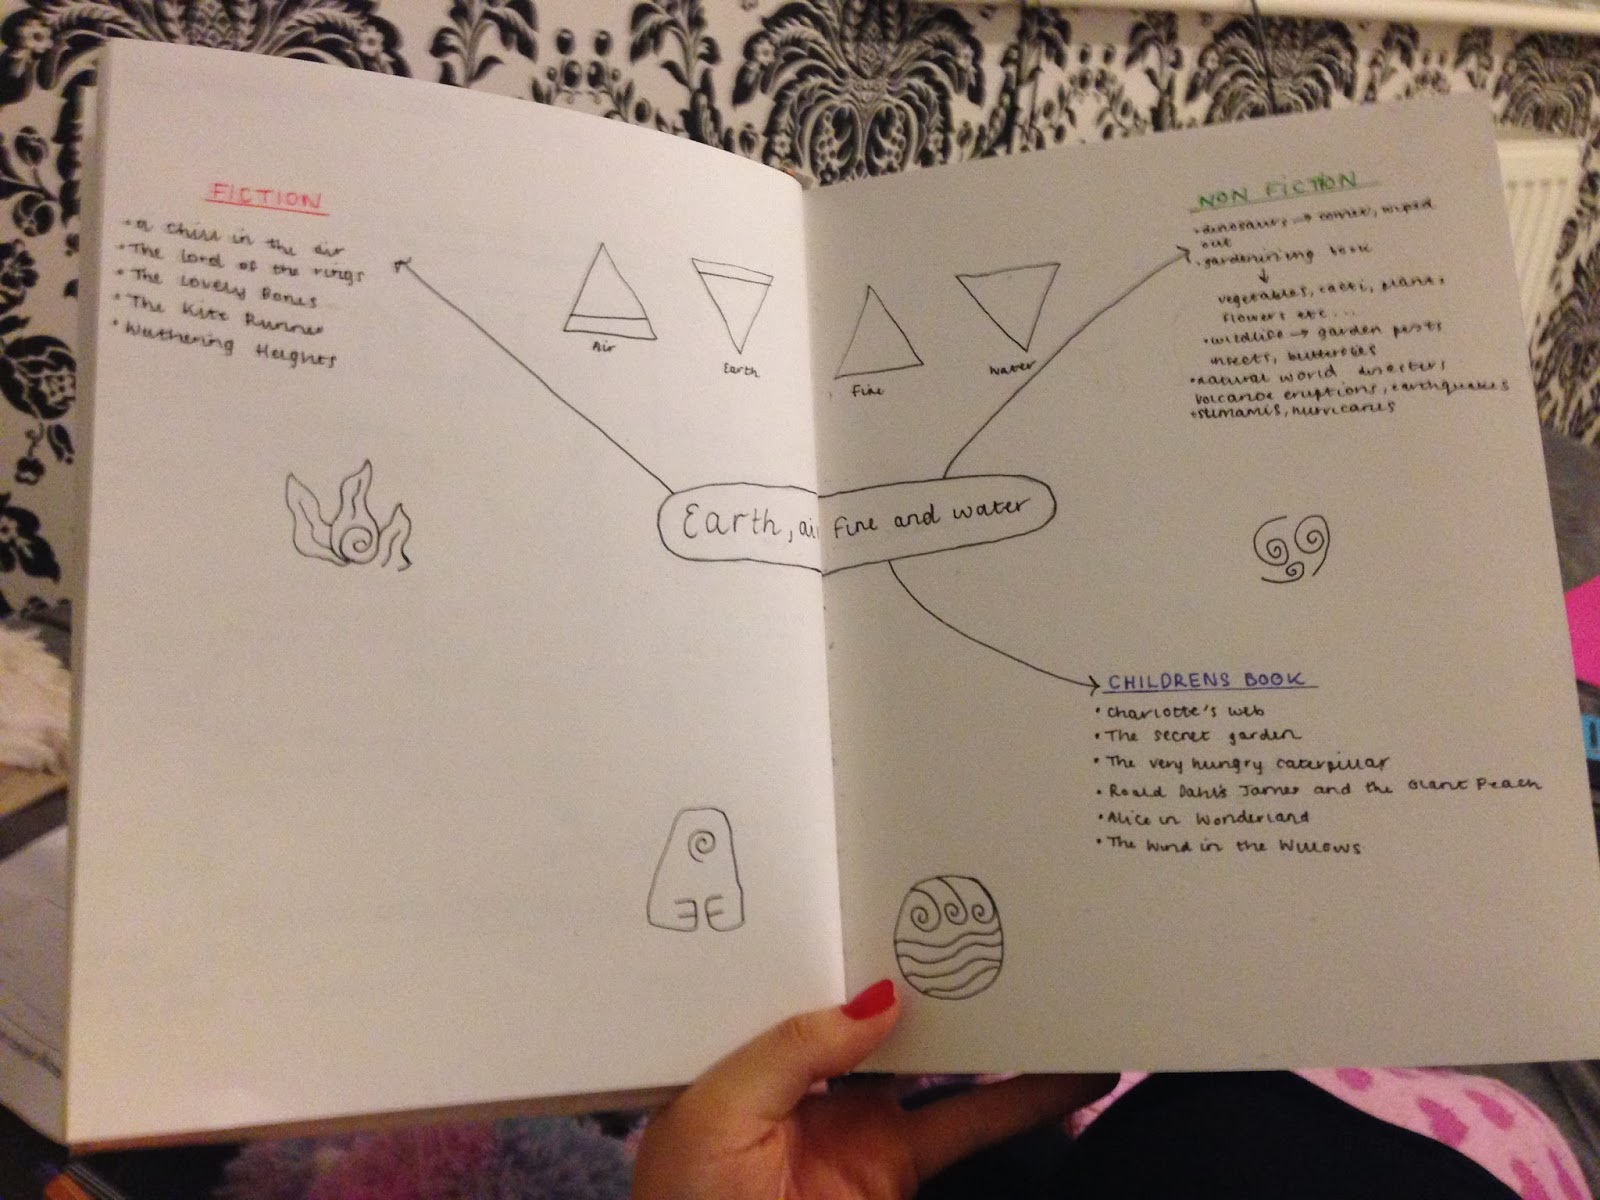 FICTION
• a chill in the air
• The lord of the rings
• The Lovely Bones
• The Kite Runner
• Wuthering Heights
Air
Earth
Fire
Water
NON FICTION
• dinosaurs → comet, wiped
out
• gardenining book
↓
vegetables, cacti, plants,
flowers etc...
• wildlife → garden pests
insects, butterflies
• natural world disasters
volcanoe eruptions, earthquakes
tsunamis, hurricanes
Earth, air fire and water
CHILDRENS BOOK
• Charlotte's web
• The secret garden
• The very hungry caterpillar
• Roald Dahl's James and the Giant Peach
• Alice in Wonderland
• The Wind in the Willows